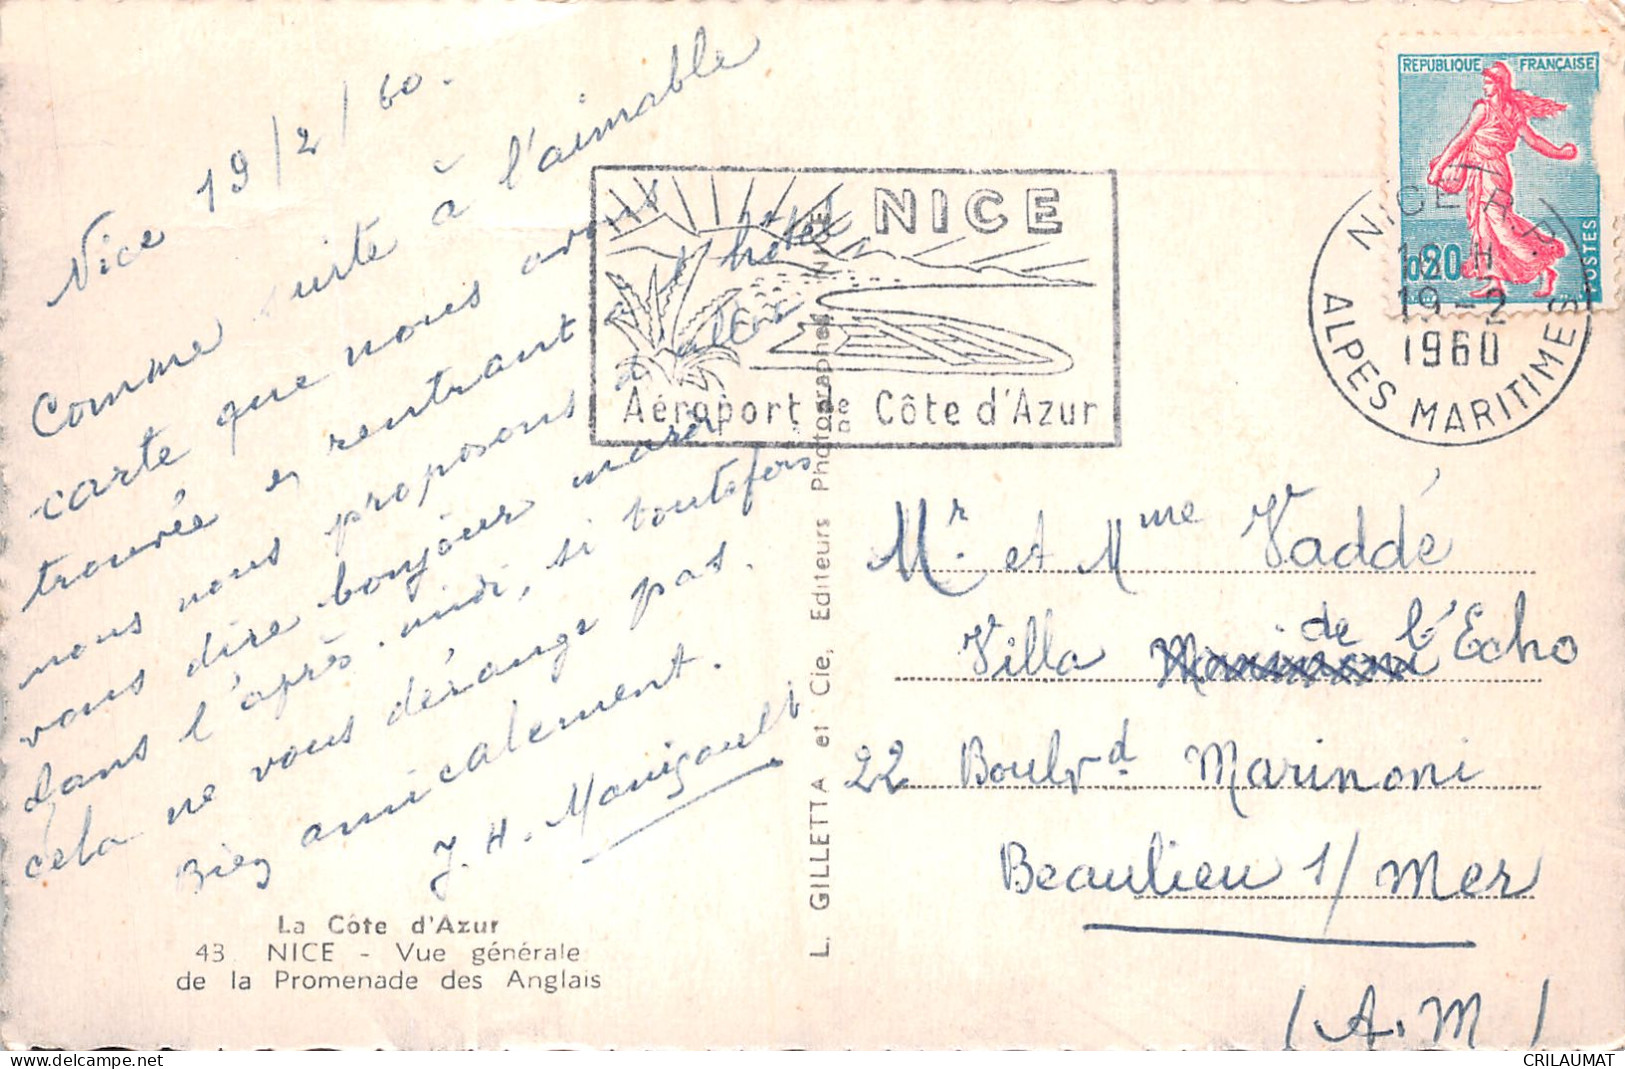 Nice 19/2/60.
Comme suite à l'aimable
carte que nous avons
trouvée en rentrant à l'hôtel
nous nous proposons d'aller
vous dire bonjour mardi
dans l'après-midi, si toutefois
cela ne vous dérange pas.
Bien amicalement.
J. H.
La Côte d'Azur
43. NICE - Vue générale
de la Promenade des Anglais
L. GILLETTA et Cie, Editeurs Photographes, NICE
NICE
Aéroport de Côte d'Azur
REPUBLIQUE FRANÇAISE
0,20
POSTES
NICE R.P.
18 H
19-2
1960
ALPES MARITIMES
Mr. et Mme Vaddé
Villa de l'Echo
22 Boulvd Marinoni
Beaulieu s/ Mer
(A.M)
CRILAUMAT